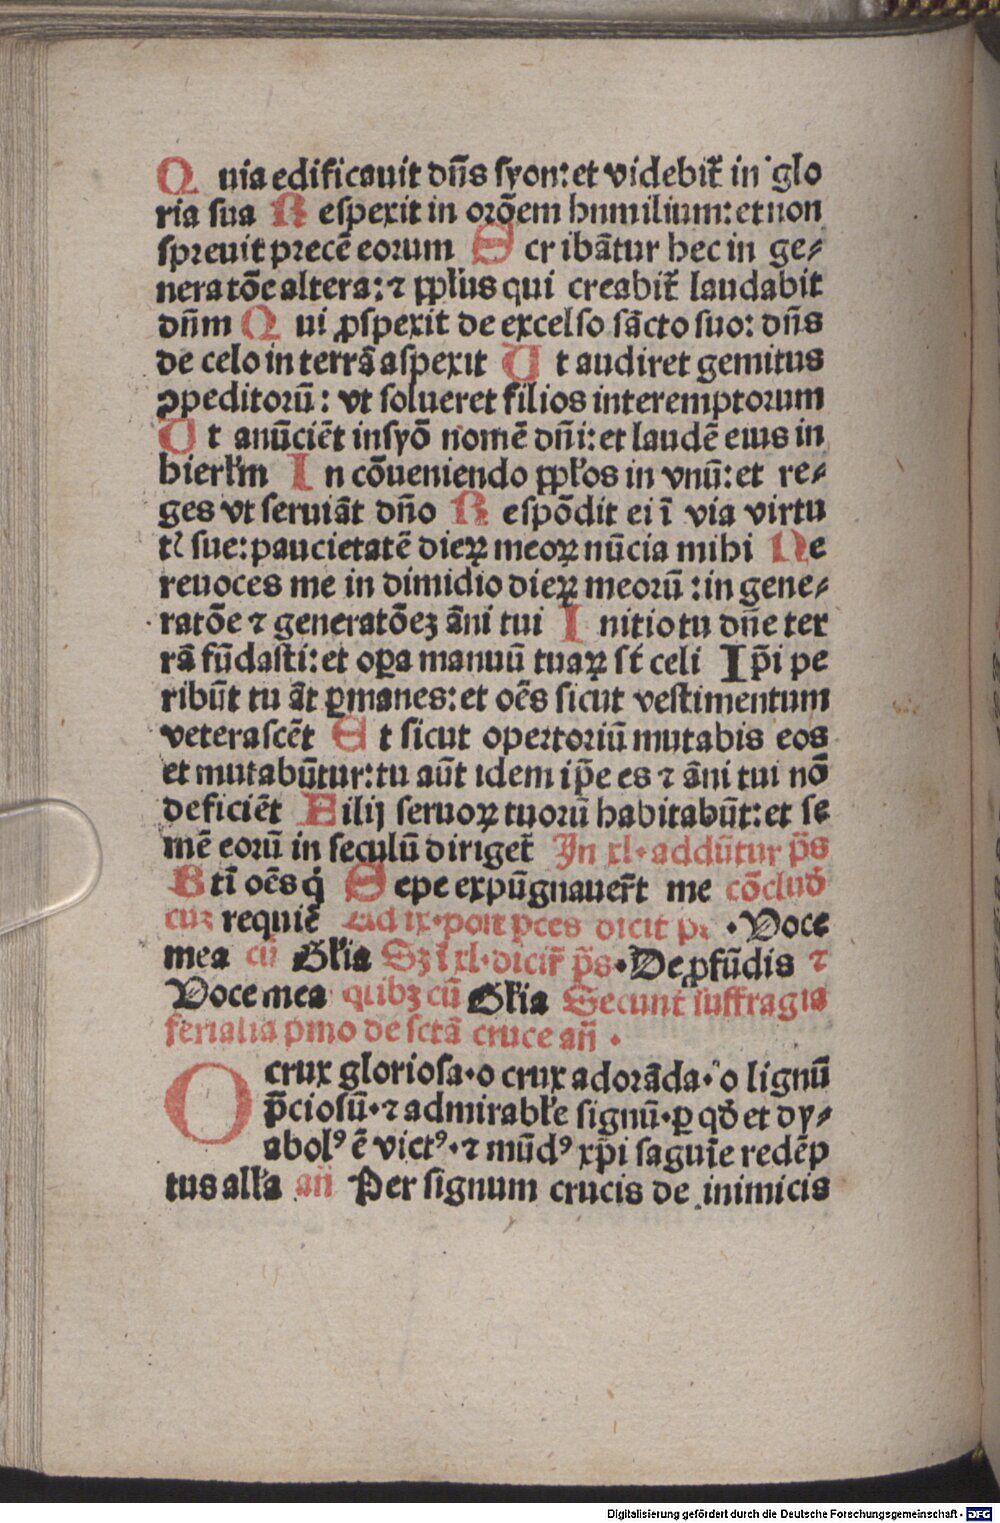 Q uia edificauit dn̄s syon: et videbit᷑ in glo
ria sua R espexit in orōem humilium: et non
spreuit precē eorum S cribātur hec in ge⸗
neratōe altera: ⁊ ꝓpl'us qui creabit᷑ laudabit
dn̄m Q ui ꝓspexit de excelso sācto suo: dn̄s
de celo in terrā aspexit U t audiret gemitus
ꝯpeditorū: vt solueret filios interemptorum
U t anūciēt in syō nomē dn̄i: et laudē eius in
hierl'm I n cōueniendo ꝓpl'os in vnū: et re⸗
ges vt seruiāt dn̄o R espōdit ei ī via virtu
tꝭ sue: paucietatē dieꝝ meoꝝ nūcia mihi Ne
reuoces me in dimidio dieꝝ meorū: in gene⸗
ratōe ⁊ generatōeꝫ āni tui I nitio tu dn̄e ter
rā fūdasti: et oꝑa manuū tuaꝝ st̄ celi I p̄i pe
ribūt tu āt ꝑmanes: et oēs sicut vestimentum
veterascēt E t sicut opertoriū mutabis eos
et mutabūtur: tu aūt idem ip̄e es ⁊ āni tui nō
deficiēt Filij seruoꝝ tuorū habitabūt: et se
mē eorū in seculū diriget᷑ In xl· addūtur p̄s
B tī oēs q̇ S epe expūgnauer̄t me cōclud̉
cuꝫ requiē Ad ix· post p̄ces dicit p̄s · Voce
mea cū Gl'ia Sꝫ ī xl· dicit᷑ p̄s · De ꝓfūdis ⁊
Voce mea quibꝫ cū Gl'ia Secunt᷑ suffragia
ferialia pmo de sctā cruce an̄ ·
O crux gloriosa· o crux adorāda· o lignū
p̄ciosū· ⁊ admirabl'e signū· ꝑ qd̉ et dy⸗
abolꝰ ē victꝰ· ⁊ mūdꝰ xp̄i saguīe redēp
tus all'a an̄ Per signum crucis de inimicis
Digitalisierung gefördert durch die Deutsche Forschungsgemeinschaft - DFG